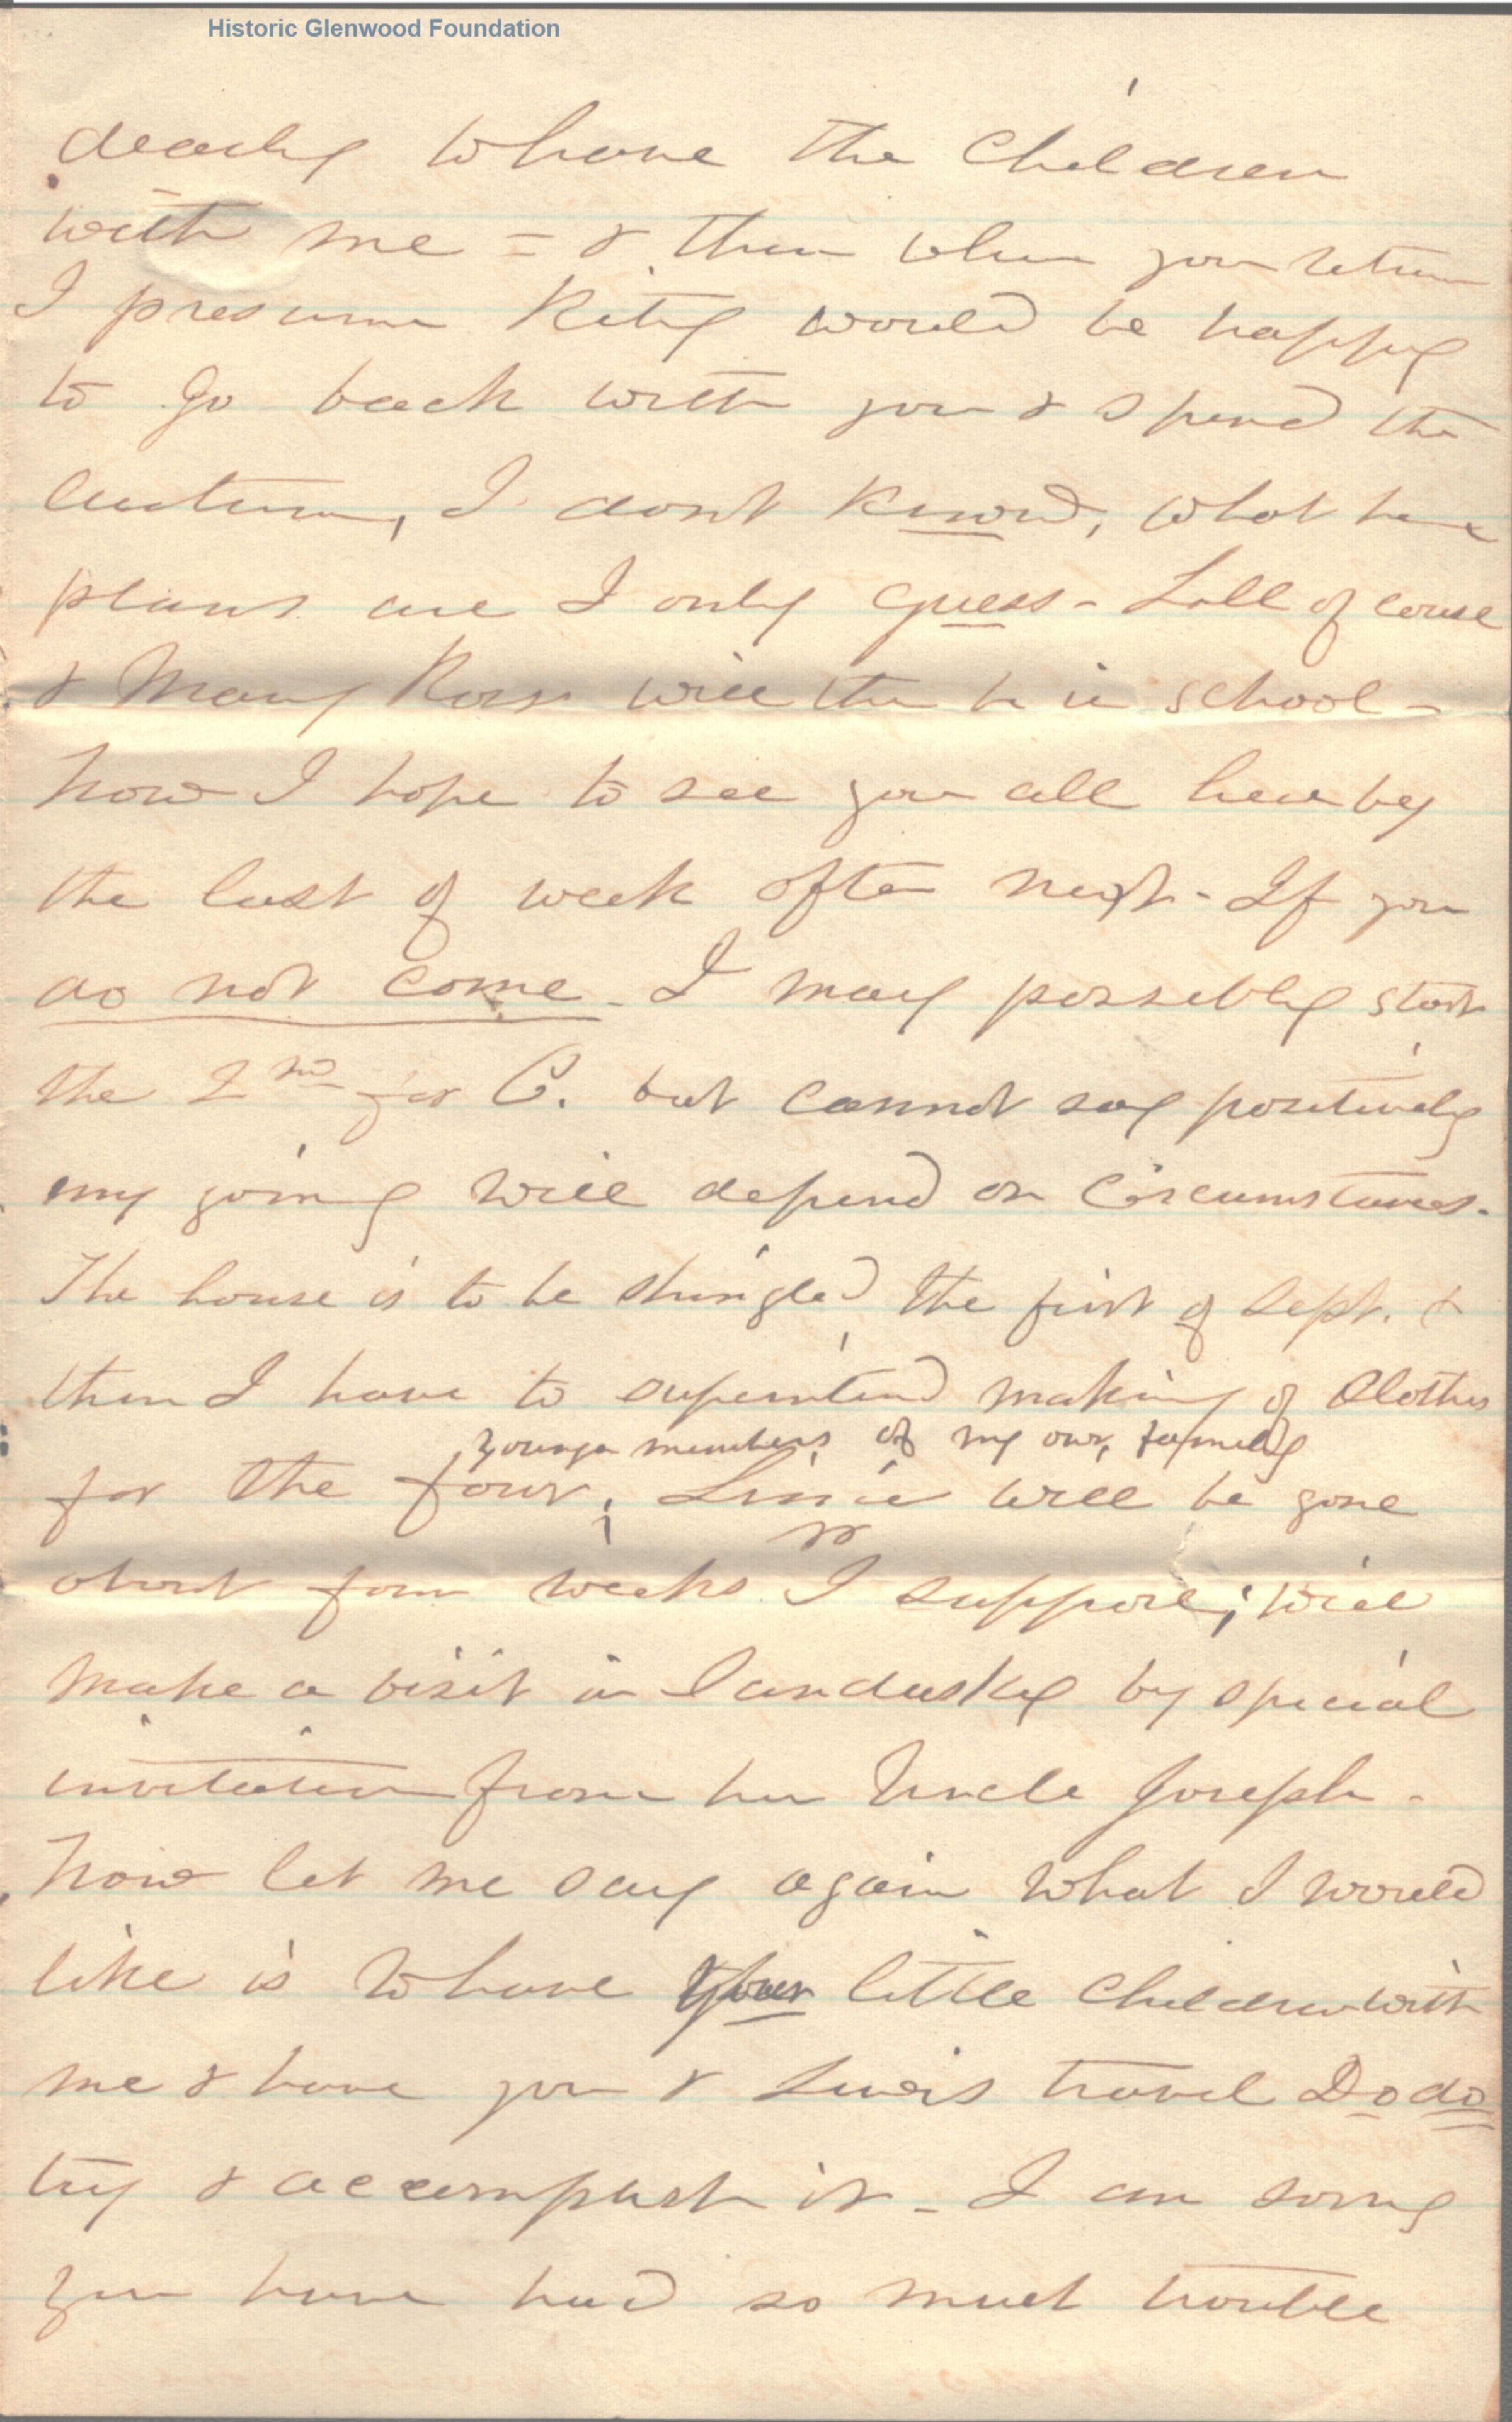 Historic Glenwood Foundation
dearly to have the children
with me = & then when you return
I presume Kitty would be happy
to go back with you & spend the
Autumn, I don't know, what her
plans are I only guess - Lall of course
& Mary Ross will then be in school -
Now I hope to see you all here by
the last of week after next - If you
do not come - I may possibly start
the 2nd for C. but cannot say positively
my going will depend on Circumstances.
The house is to be shingled the first of Sept. &
then I have to superintend making of Clothes
younger members of my own family
for the four, will be gone
about four weeks I suppose; will
make a visit in Sandusky by special
invitation from her Uncle Joseph -
Now let me say again what I would
like is to have your little children with
me & have you & Lewis travel Do do
try & accomplish it - I am sorry
you have had so much trouble